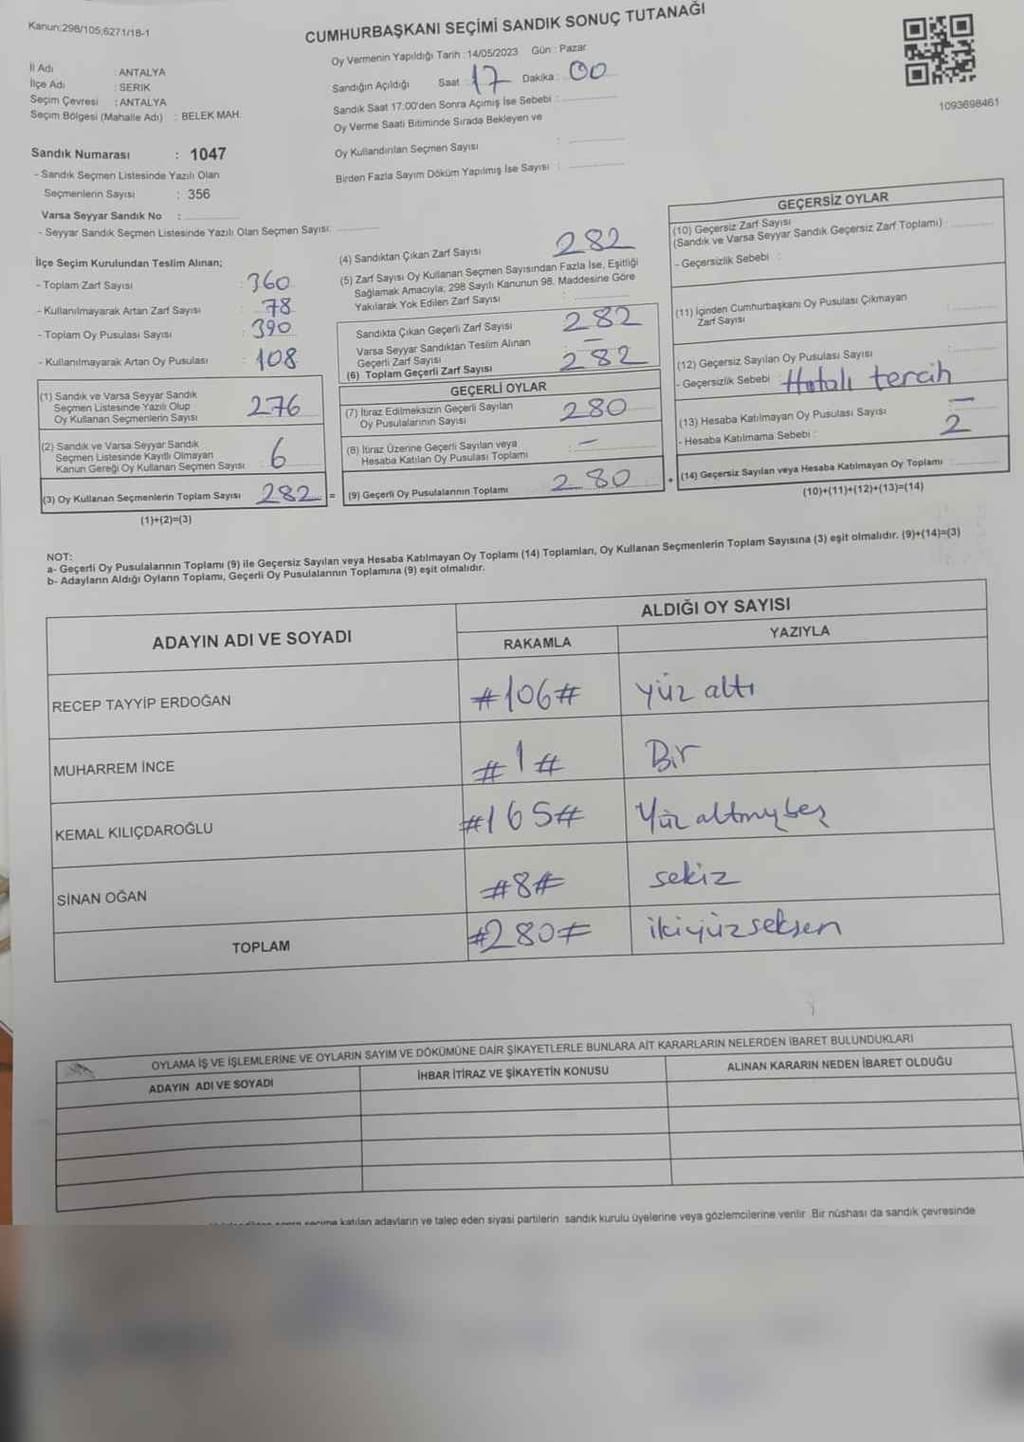 Kanun:298/105,6271/18-1
CUMHURBAŞKANI SEÇİMİ SANDIK SONUÇ TUTANAĞI
Oy Vermenin Yapıldığı Tarih : 14/05/2023 Gün : Pazar
Sandığın Açıldığı Saat : 17 Dakika : 00
Sandık Saat 17:00'den Sonra Açımış İse Sebebi :
Oy Verme Saati Bitiminde Sırada Bekleyen ve
Oy Kullandırılan Seçmen Sayısı :
Birden Fazla Sayım Döküm Yapılmış İse Sayısı :
1093698461
İl Adı : ANTALYA
İlçe Adı : SERİK
Seçim Çevresi : ANTALYA
Seçim Bölgesi (Mahalle Adı) : BELEK MAH.
Sandık Numarası : 1047
- Sandık Seçmen Listesinde Yazılı Olan
Seçmenlerin Sayısı : 356
Varsa Seyyar Sandık No :
- Seyyar Sandık Seçmen Listesinde Yazılı Olan Seçmen Sayısı:
İlçe Seçim Kurulundan Teslim Alınan;
- Toplam Zarf Sayısı : 360
- Kullanılmayarak Artan Zarf Sayısı : 78
- Toplam Oy Pusulası Sayısı : 390
- Kullanılmayarak Artan Oy Pusulası : 108
(1) Sandık ve Varsa Seyyar Sandık
Seçmen Listesinde Yazılı Olup
Oy Kullanan Seçmenlerin Sayısı : 276
(2) Sandık ve Varsa Seyyar Sandık
Seçmen Listesinde Kayıtlı Olmayan
Kanun Gereği Oy Kullanan Seçmen Sayısı : 6
(3) Oy Kullanan Seçmenlerin Toplam Sayısı 282 =
(1)+(2)=(3)
(4) Sandıktan Çıkan Zarf Sayısı 282
(5) Zarf Sayısı Oy Kullanan Seçmen Sayısından Fazla İse, Eşitliği
Sağlamak Amacıyla; 298 Sayılı Kanunun 98. Maddesine Göre
Yakılarak Yok Edilen Zarf Sayısı :
Sandıkta Çıkan Geçerli Zarf Sayısı 282
Varsa Seyyar Sandıktan Teslim Alınan
Geçerli Zarf Sayısı : —
(6) Toplam Geçerli Zarf Sayısı 282
GEÇERLİ OYLAR
(7) İtiraz Edilmeksizin Geçerli Sayılan
Oy Pusulalarının Sayısı : 280
(8) İtiraz Üzerine Geçerli Sayılan veya
Hesaba Katılan Oy Pusulası Toplamı : —
(9) Geçerli Oy Pusulalarının Toplamı 280 +
GEÇERSİZ OYLAR
(10) Geçersiz Zarf Sayısı
(Sandık ve Varsa Seyyar Sandık Geçersiz Zarf Toplamı) :
- Geçersizlik Sebebi :
(11) İçinden Cumhurbaşkanı Oy Pusulası Çıkmayan
Zarf Sayısı :
(12) Geçersiz Sayılan Oy Pusulası Sayısı :
- Geçersizlik Sebebi : Hatalı tercih
(13) Hesaba Katılmayan Oy Pusulası Sayısı : —
- Hesaba Katılmama Sebebi : 2
(14) Geçersiz Sayılan veya Hesaba Katılmayan Oy Toplamı :
(10)+(11)+(12)+(13)=(14)
NOT:
a- Geçerli Oy Pusulalarının Toplamı (9) ile Geçersiz Sayılan veya Hesaba Katılmayan Oy Toplamı (14) Toplamları, Oy Kullanan Seçmenlerin Toplam Sayısına (3) eşit olmalıdır. (9)+(14)=(3)
b- Adayların Aldığı Oyların Toplamı, Geçerli Oy Pusulalarının Toplamına (9) eşit olmalıdır.
ADAYIN ADI VE SOYADI
ALDIĞI OY SAYISI
RAKAMLA YAZIYLA
RECEP TAYYİP ERDOĞAN #106# Yüz altı
MUHARREM İNCE #1# Bir
KEMAL KILIÇDAROĞLU #165# Yüz altmışbeş
SİNAN OĞAN #8# sekiz
TOPLAM #280# ikiyüzseksen
OYLAMA İŞ VE İŞLEMLERİNE VE OYLARIN SAYIM VE DÖKÜMÜNE DAİR ŞİKAYETLERLE BUNLARA AİT KARARLARIN NELERDEN İBARET BULUNDUKLARI
ADAYIN ADI VE SOYADI İHBAR İTİRAZ VE ŞİKAYETİN KONUSU ALINAN KARARIN NEDEN İBARET OLDUĞU
katılan adayların ve talep eden siyasi partilerin sandık kurulu üyelerine veya gözlemcilerine verilir. Bir nüshası da sandık çevresinde